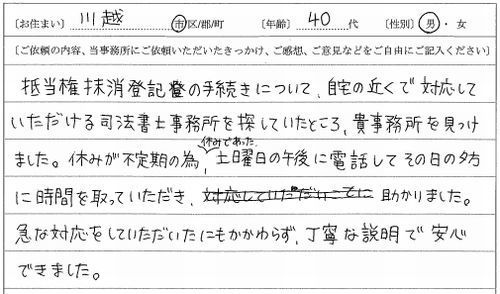 〔お住まい〕 川越 市区/郡/町 〔年齢〕 40 代 〔性別〕 男・女
〔ご依頼の内容、当事務所にご依頼いただいたきっかけ、ご感想、ご意見などをご自由にご記入ください〕
抵当権抹消登記の手続きについて、自宅の近くで対応して
いただける司法書士事務所を探していたところ、貴事務所を見つけ
休みであった
ました。休みが不定期の為、土曜日の午後に電話してその日の夕方
に時間を取っていただき、対応していただいてに助かりました。
急な対応をしていただいたにもかかわらず、丁寧な説明で安心
できました。